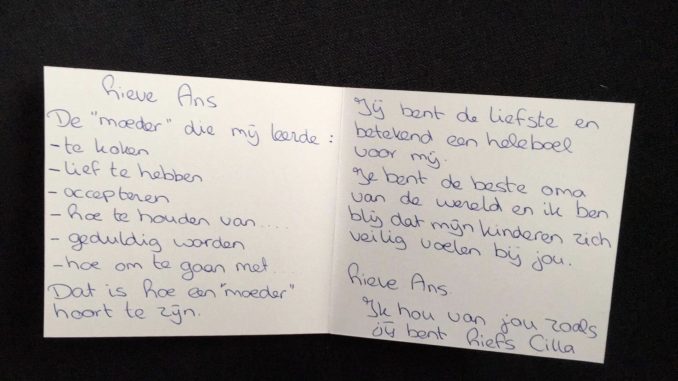 Lieve Ans
De "moeder" die mij leerde :
- te koken
- lief te hebben
- accepteren
- hoe te houden van .....
- geduldig worden
- hoe om te gaan met ....
Dat is hoe een "moeder"
hoort te zijn.
Jij bent de liefste en
betekend een heleboel
voor mij.
Je bent de beste oma
van de wereld en ik ben
blij dat mijn kinderen zich
veilig voelen bij jou.
Lieve Ans.
Ik hou van jou zoals
jij bent Liefs Cilla